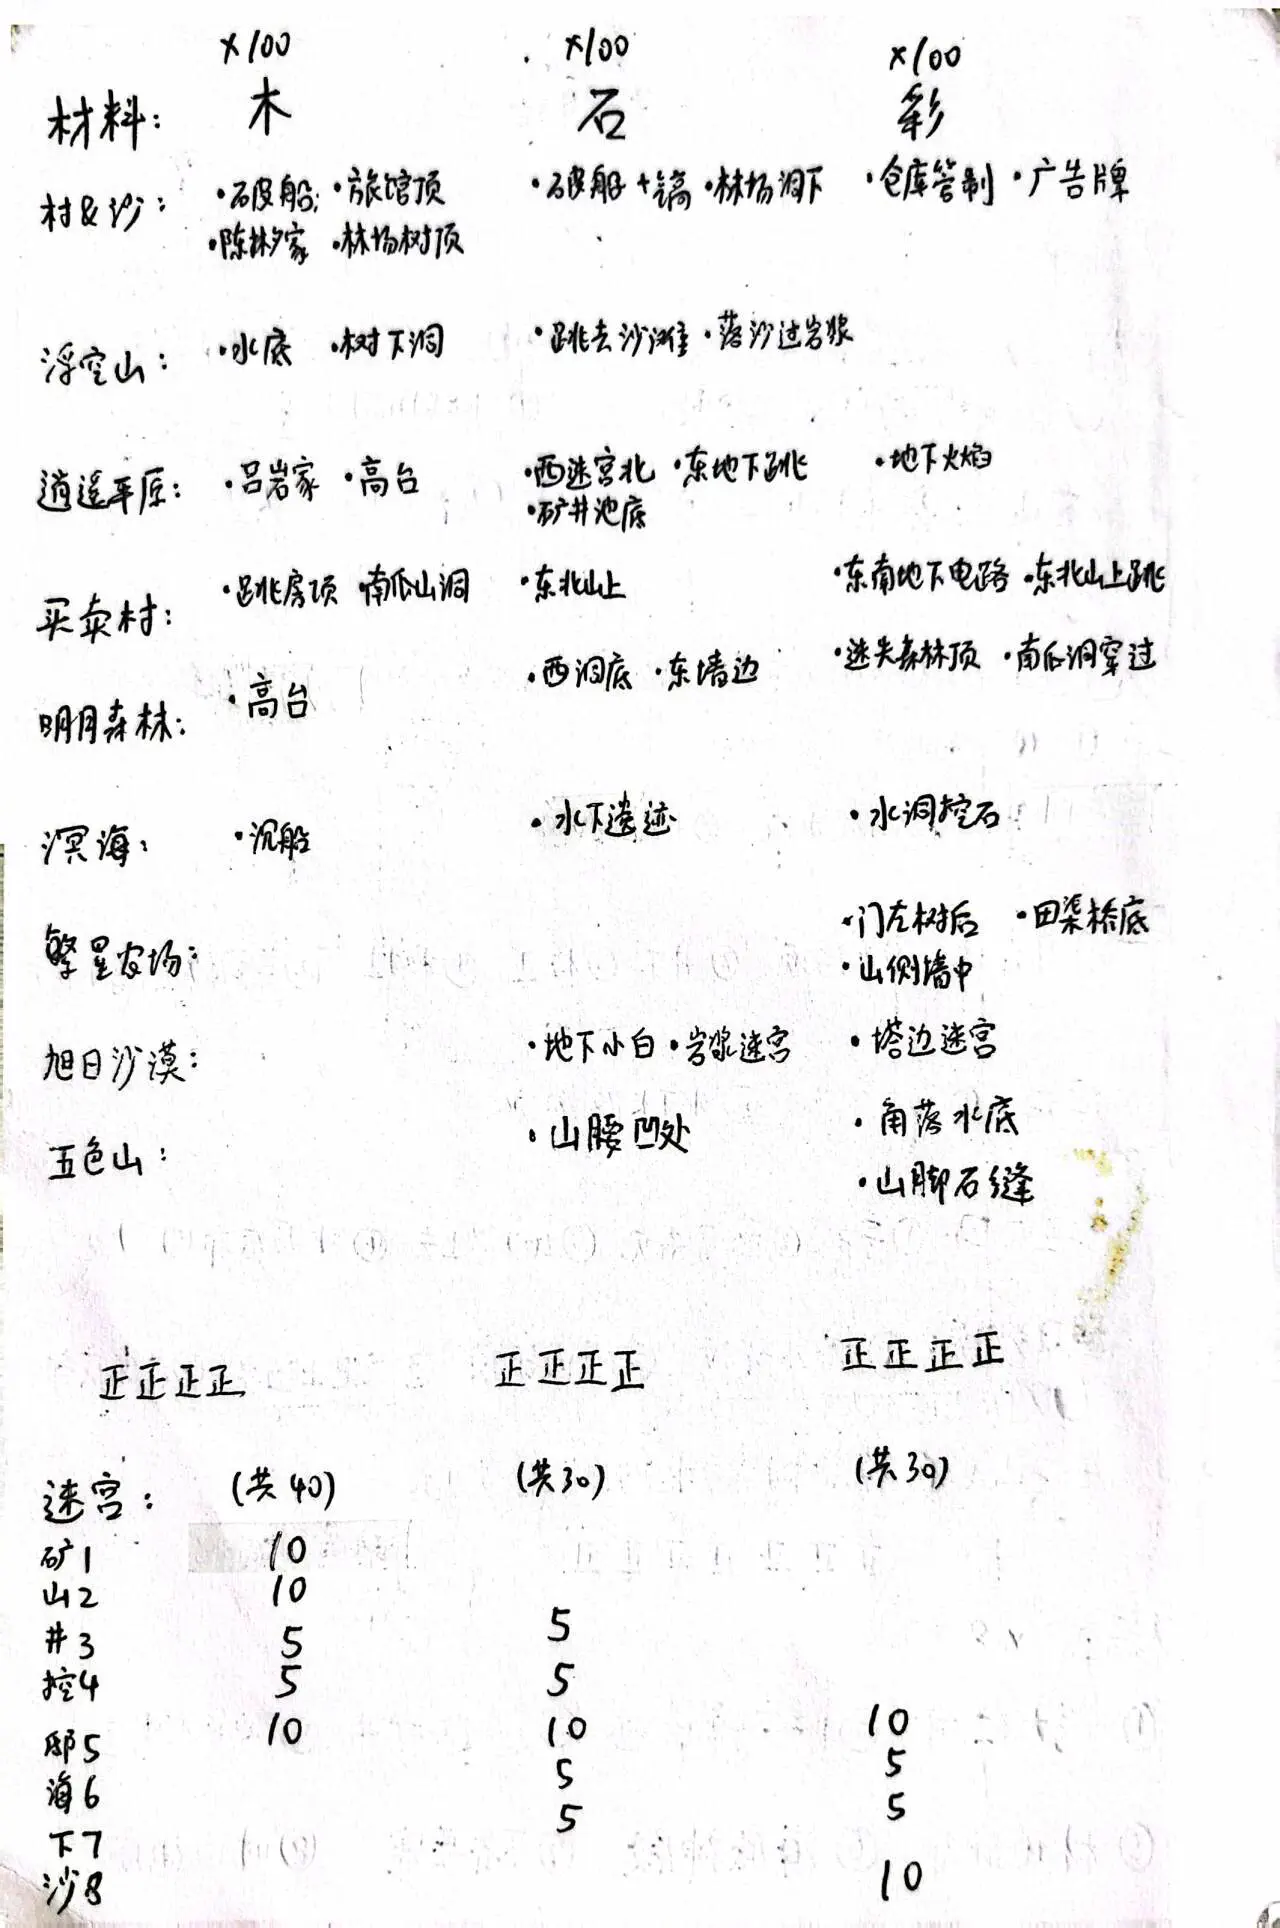 ×100 ×100 ×100
材料: 木 石 彩
村&沙: ·破船; ·旅馆顶 ·破船+镐 ·林场洞下 ·仓库管制 ·广告牌
·陈林夕家 ·林场树顶
浮空山: ·水底 ·树下洞 ·跳去沙滩 ·落沙过岩浆
逍遥平原: ·吕岩家 ·高台 ·西迷宫北 ·东地下跳 ·地下火焰
·矿井池底
买卖村: ·跳房顶 ·南瓜山洞 ·东北山上 ·东南地下电路 ·东北山上跳
明月森林: ·高台 ·西洞底 ·东墙边 ·迷失森林顶 ·南瓜洞穿过
溟海: ·沉船 ·水下遗迹 ·水洞挖石
繁星农场: ·门左树后 ·田渠桥底
·山侧墙中
旭日沙漠: ·地下小白 ·岩浆迷宫 ·塔边迷宫
五色山: ·山腰凹处 ·角落水底
·山脚石缝
正正正正 正正正正 正正正正
迷宫: (共40) (共30) (共30)
矿1 10
山2 10
井3 5 5
挖4 5 5
邸5 10 10 10
海6 5 5
下7 5 5
沙8 10